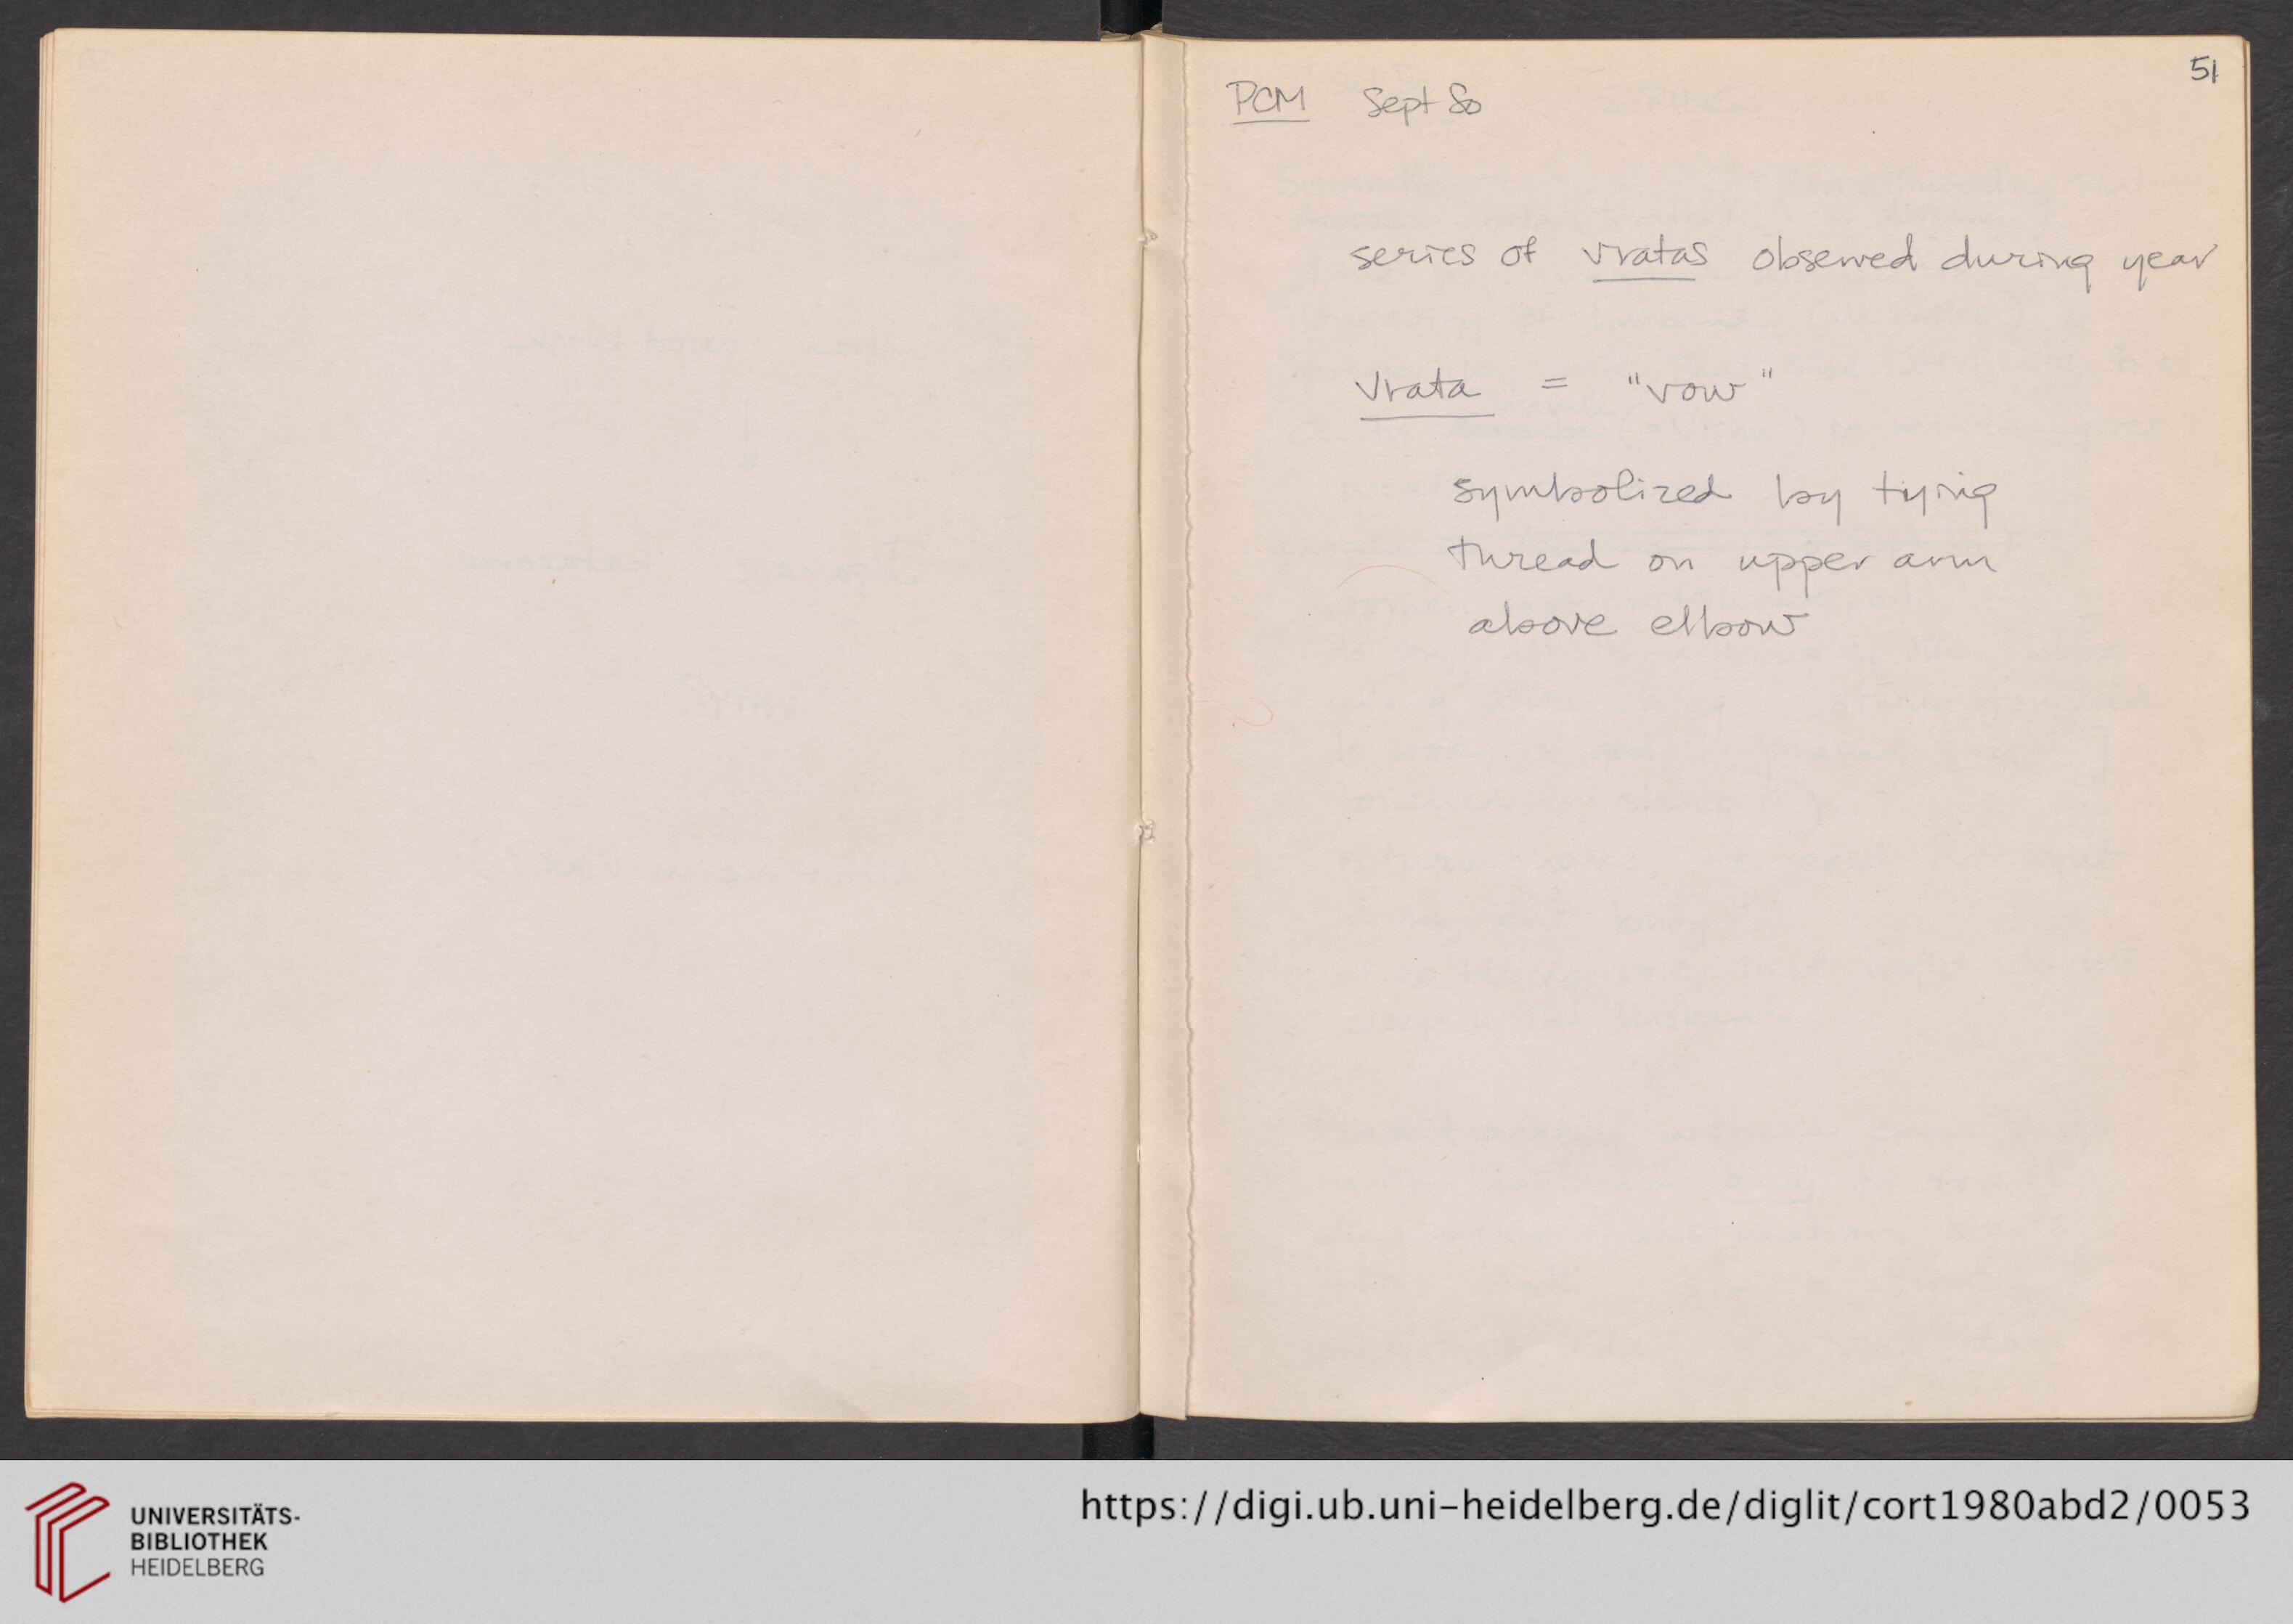 51
PCM Sept 80
series of vratas observed during year
vrata = "vow"
symbolized by tying
thread on upper arm
above elbow
UNIVERSITÄTS-
BIBLIOTHEK
HEIDELBERG
https://digi.ub.uni-heidelberg.de/diglit/cort1980abd2/0053